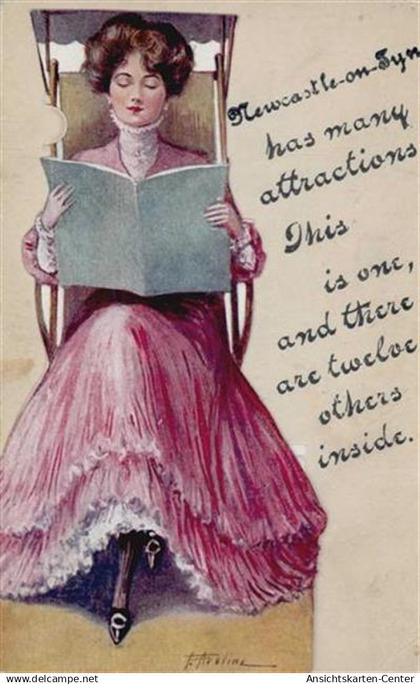 Newcastle-on-Tyn
has many
attractions
This
is one,
and there
are twelve
others
inside.
A. Aveline
Ansichtskarten-Center